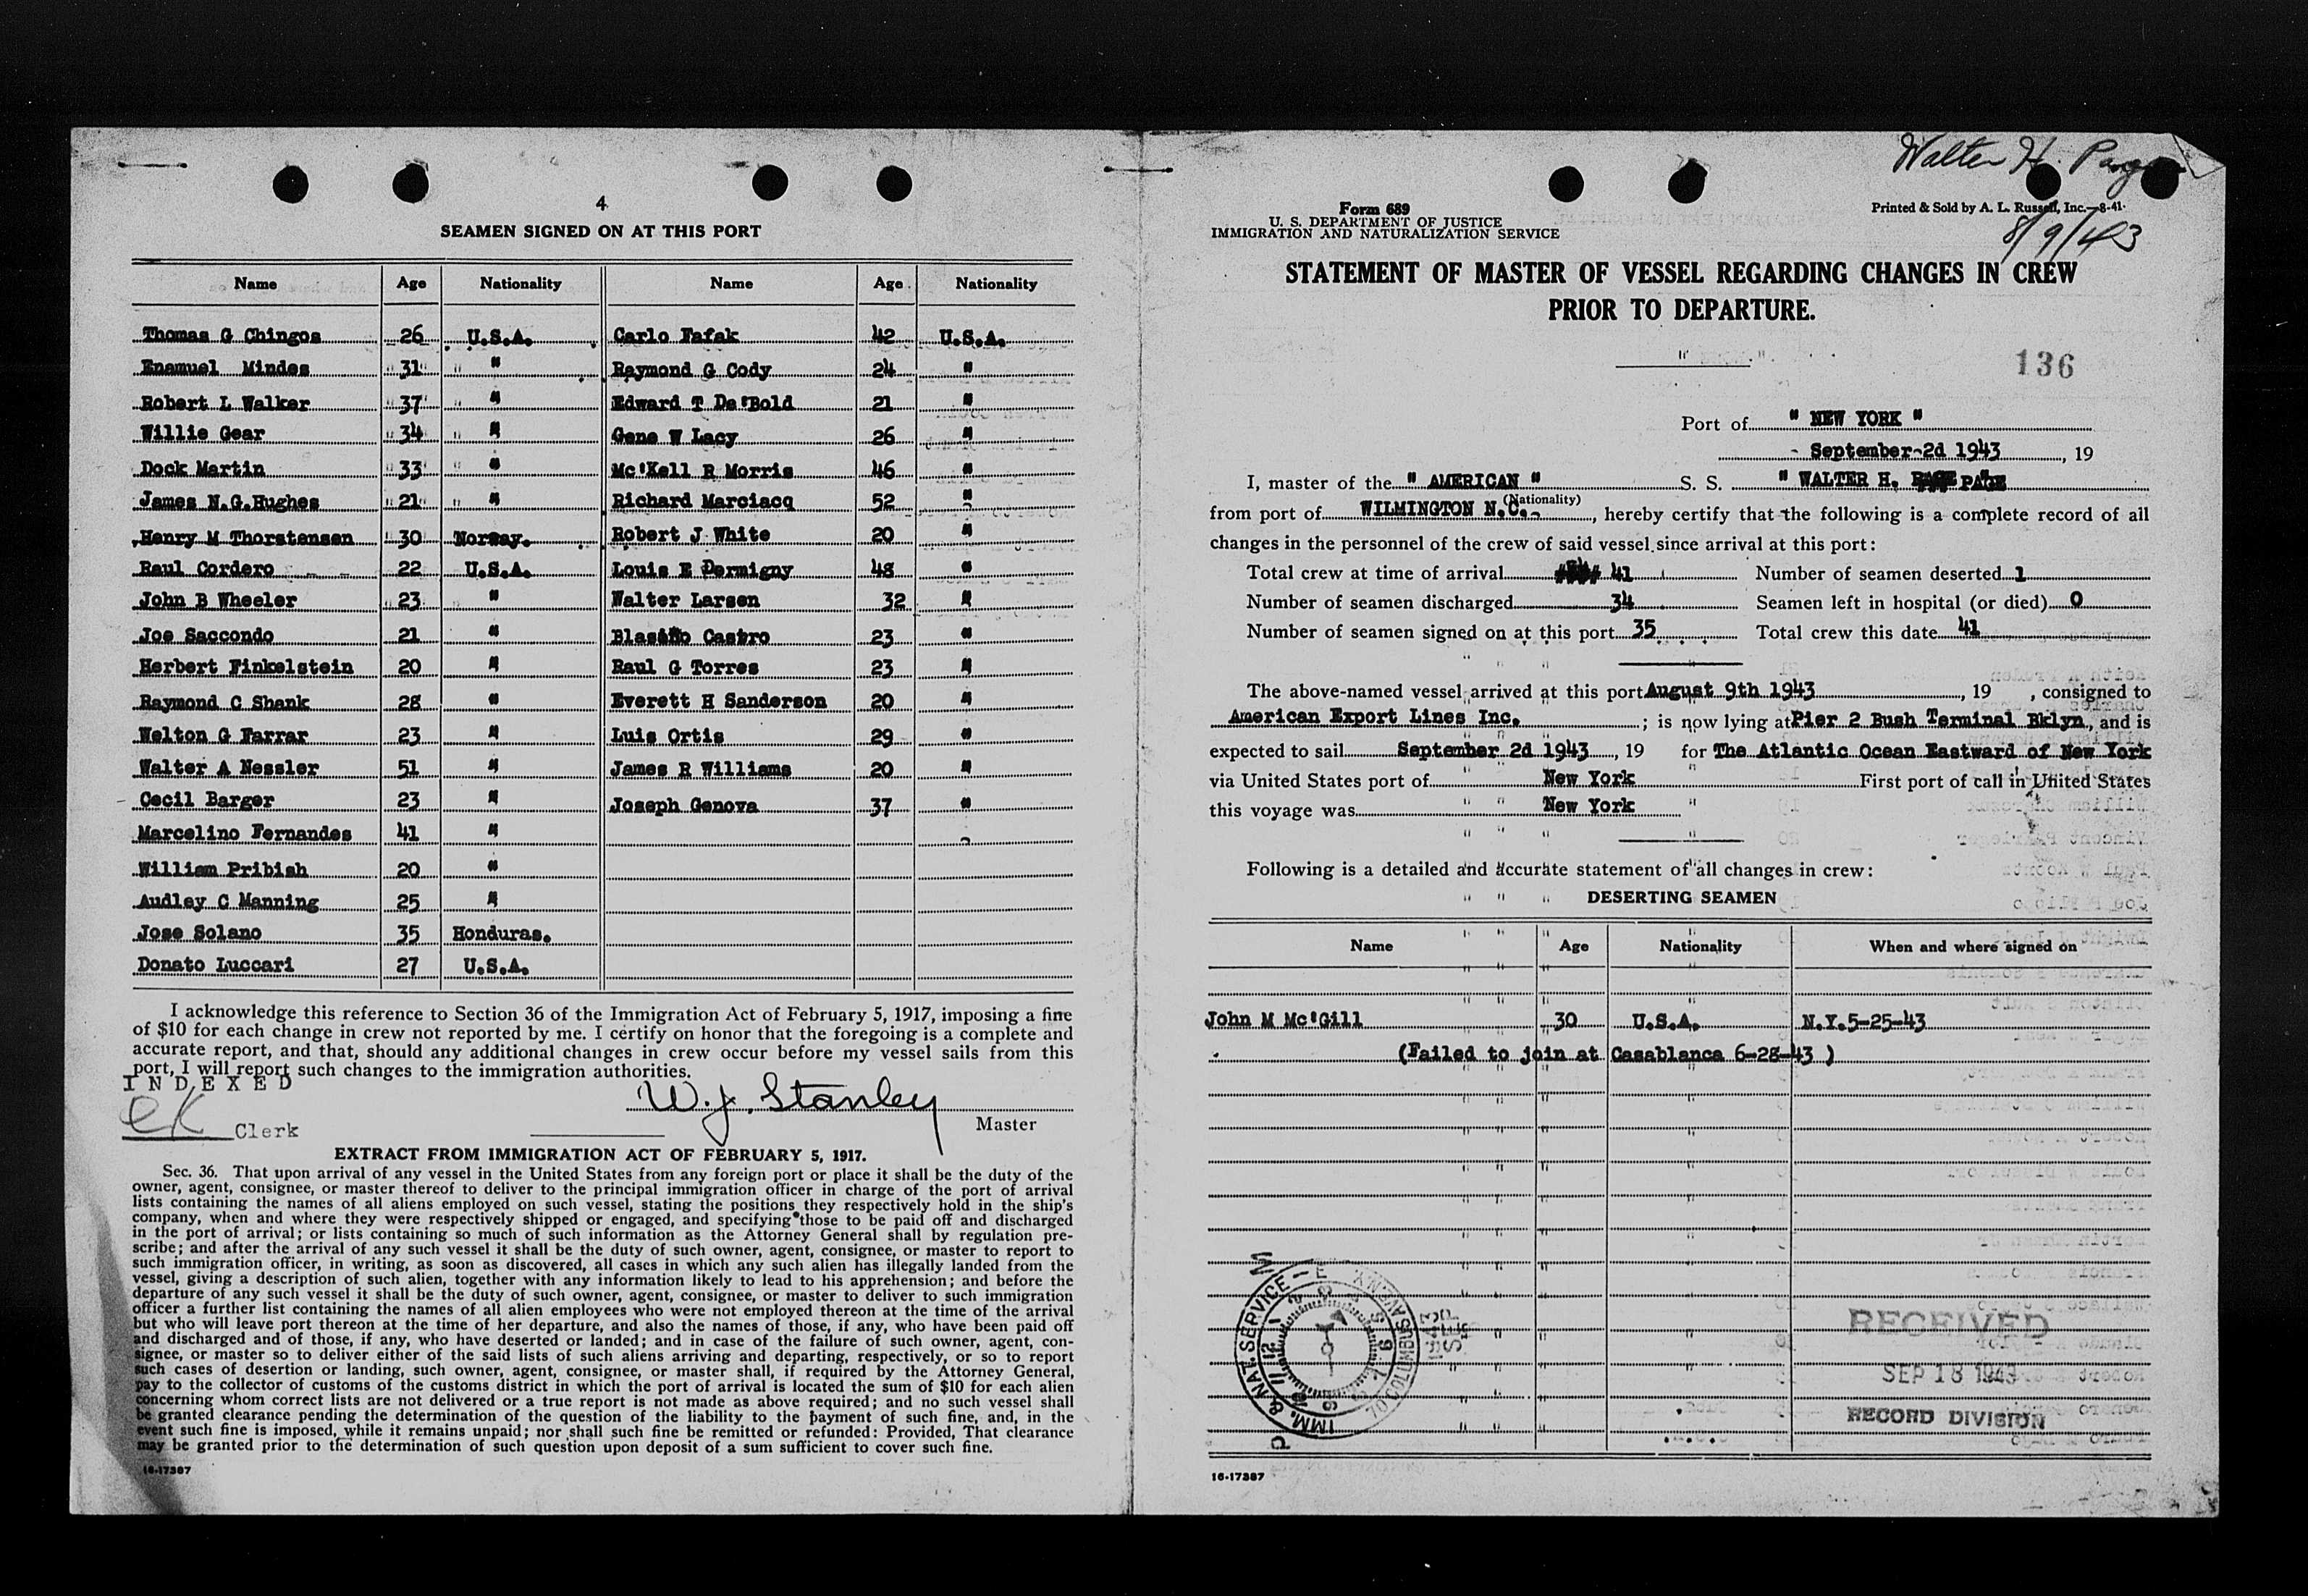 4
SEAMEN SIGNED ON AT THIS PORT
Name Age Nationality Name Age Nationality
Thomas G Chingos 26 U.S.A. Carlo Fafak 42 U.S.A.
Enamuel Mindes 31 " Raymond G Cody 24 "
Robert L Walker 37 " Edward T De'Bold 21 "
Willie Gear 34 " Gene W Lacy 26 "
Dock Martin 33 " Mc'Kell R Morris 46 "
James N.G.Hughes 21 " Richard Marciacq 52 "
Henry M Thorstensen 30 Norway. Robert J White 20 "
Raul Cordero 22 U.S.A. Louis E Dermigny 48 "
John B Wheeler 23 " Walter Larsen 32 "
Joe Saccondo 21 " Castro 23 "
Herbert Finkelstein 20 " Raul G Torres 23 "
Raymond C Shank 28 " Everett H Sanderson 20 "
Welton G Farrar 23 " Luis Ortis 29 "
Walter A Nessler 51 " James R Williams 20 "
Cecil Barger 23 " Joseph Genova 37 "
Marcelino Fernandes 41 "
William Pribish 20 "
Audley C Manning 25 "
Jose Solano 35 Honduras.
Donato Luccari 27 U.S.A.
I acknowledge this reference to Section 36 of the Immigration Act of February 5, 1917, imposing a fine
of $10 for each change in crew not reported by me. I certify on honor that the foregoing is a complete and
accurate report, and that, should any additional changes in crew occur before my vessel sails from this
port, I will report such changes to the immigration authorities.
INDEXED
W. J. Stanley
EK Clerk
Master
EXTRACT FROM IMMIGRATION ACT OF FEBRUARY 5, 1917.
Sec. 36. That upon arrival of any vessel in the United States from any foreign port or place it shall be the duty of the
owner, agent, consignee, or master thereof to deliver to the principal immigration officer in charge of the port of arrival
lists containing the names of all aliens employed on such vessel, stating the positions they respectively hold in the ship's
company, when and where they were respectively shipped or engaged, and specifying those to be paid off and discharged
in the port of arrival; or lists containing so much of such information as the Attorney General shall by regulation pre-
scribe; and after the arrival of any such vessel it shall be the duty of such owner, agent, consignee, or master to report to
such immigration officer, in writing, as soon as discovered, all cases in which any such alien has illegally landed from the
vessel, giving a description of such alien, together with any information likely to lead to his apprehension; and before the
departure of any such vessel it shall be the duty of such owner, agent, consignee, or master to deliver to such immigration
officer a further list containing the names of all alien employees who were not employed thereon at the time of the arrival
but who will leave port thereon at the time of her departure, and also the names of those, if any, who have been paid off
and discharged and of those, if any, who have deserted or landed; and in case of the failure of such owner, agent, con-
signee, or master so to deliver either of the said lists of such aliens arriving and departing, respectively, or so to report
such cases of desertion or landing, such owner, agent, consignee, or master shall, if required by the Attorney General,
pay to the collector of customs of the customs district in which the port of arrival is located the sum of $10 for each alien
concerning whom correct lists are not delivered or a true report is not made as above required; and no such vessel shall
be granted clearance pending the determination of the question of the liability to the payment of such fine, and, in the
event such fine is imposed, while it remains unpaid; nor shall such fine be remitted or refunded: Provided, That clearance
may be granted prior to the determination of such question upon deposit of a sum sufficient to cover such fine.
16-17387
Walter H. Page
Form 689
U. S. DEPARTMENT OF JUSTICE
IMMIGRATION AND NATURALIZATION SERVICE
Printed & Sold by A. L. Russell, Inc.—8-41.
8/9/43
STATEMENT OF MASTER OF VESSEL REGARDING CHANGES IN CREW
PRIOR TO DEPARTURE.
136
Port of " NEW YORK "
September-2d 1943, 19
I, master of the " AMERICAN " S. S. " WALTER H. PAGE
(Nationality)
from port of WILMINGTON N.C.-, hereby certify that the following is a complete record of all
changes in the personnel of the crew of said vessel since arrival at this port:
Total crew at time of arrival 41 Number of seamen deserted 1
Number of seamen discharged 34 Seamen left in hospital (or died) 0
Number of seamen signed on at this port 35 Total crew this date 41
The above-named vessel arrived at this port August 9th 1943, 19 , consigned to
American Export Lines Inc. ; is now lying at Pier 2 Bush Terminal Bklyn, and is
expected to sail September 2d 1943, 19 for The Atlantic Ocean Eastward of New York
via United States port of New York First port of call in United States
this voyage was New York
Following is a detailed and accurate statement of all changes in crew:
DESERTING SEAMEN
Name Age Nationality When and where signed on
John M Mc'Gill 30 U.S.A. N.Y.5-25-43
(Failed to join at Casablanca 6-28-43 )
IMM. & NAT. SERVICE
70 COLUMBUS AV. N.Y.
1943
SEP
RECEIVED
SEP 18 1943
RECORD DIVISION
16-17387